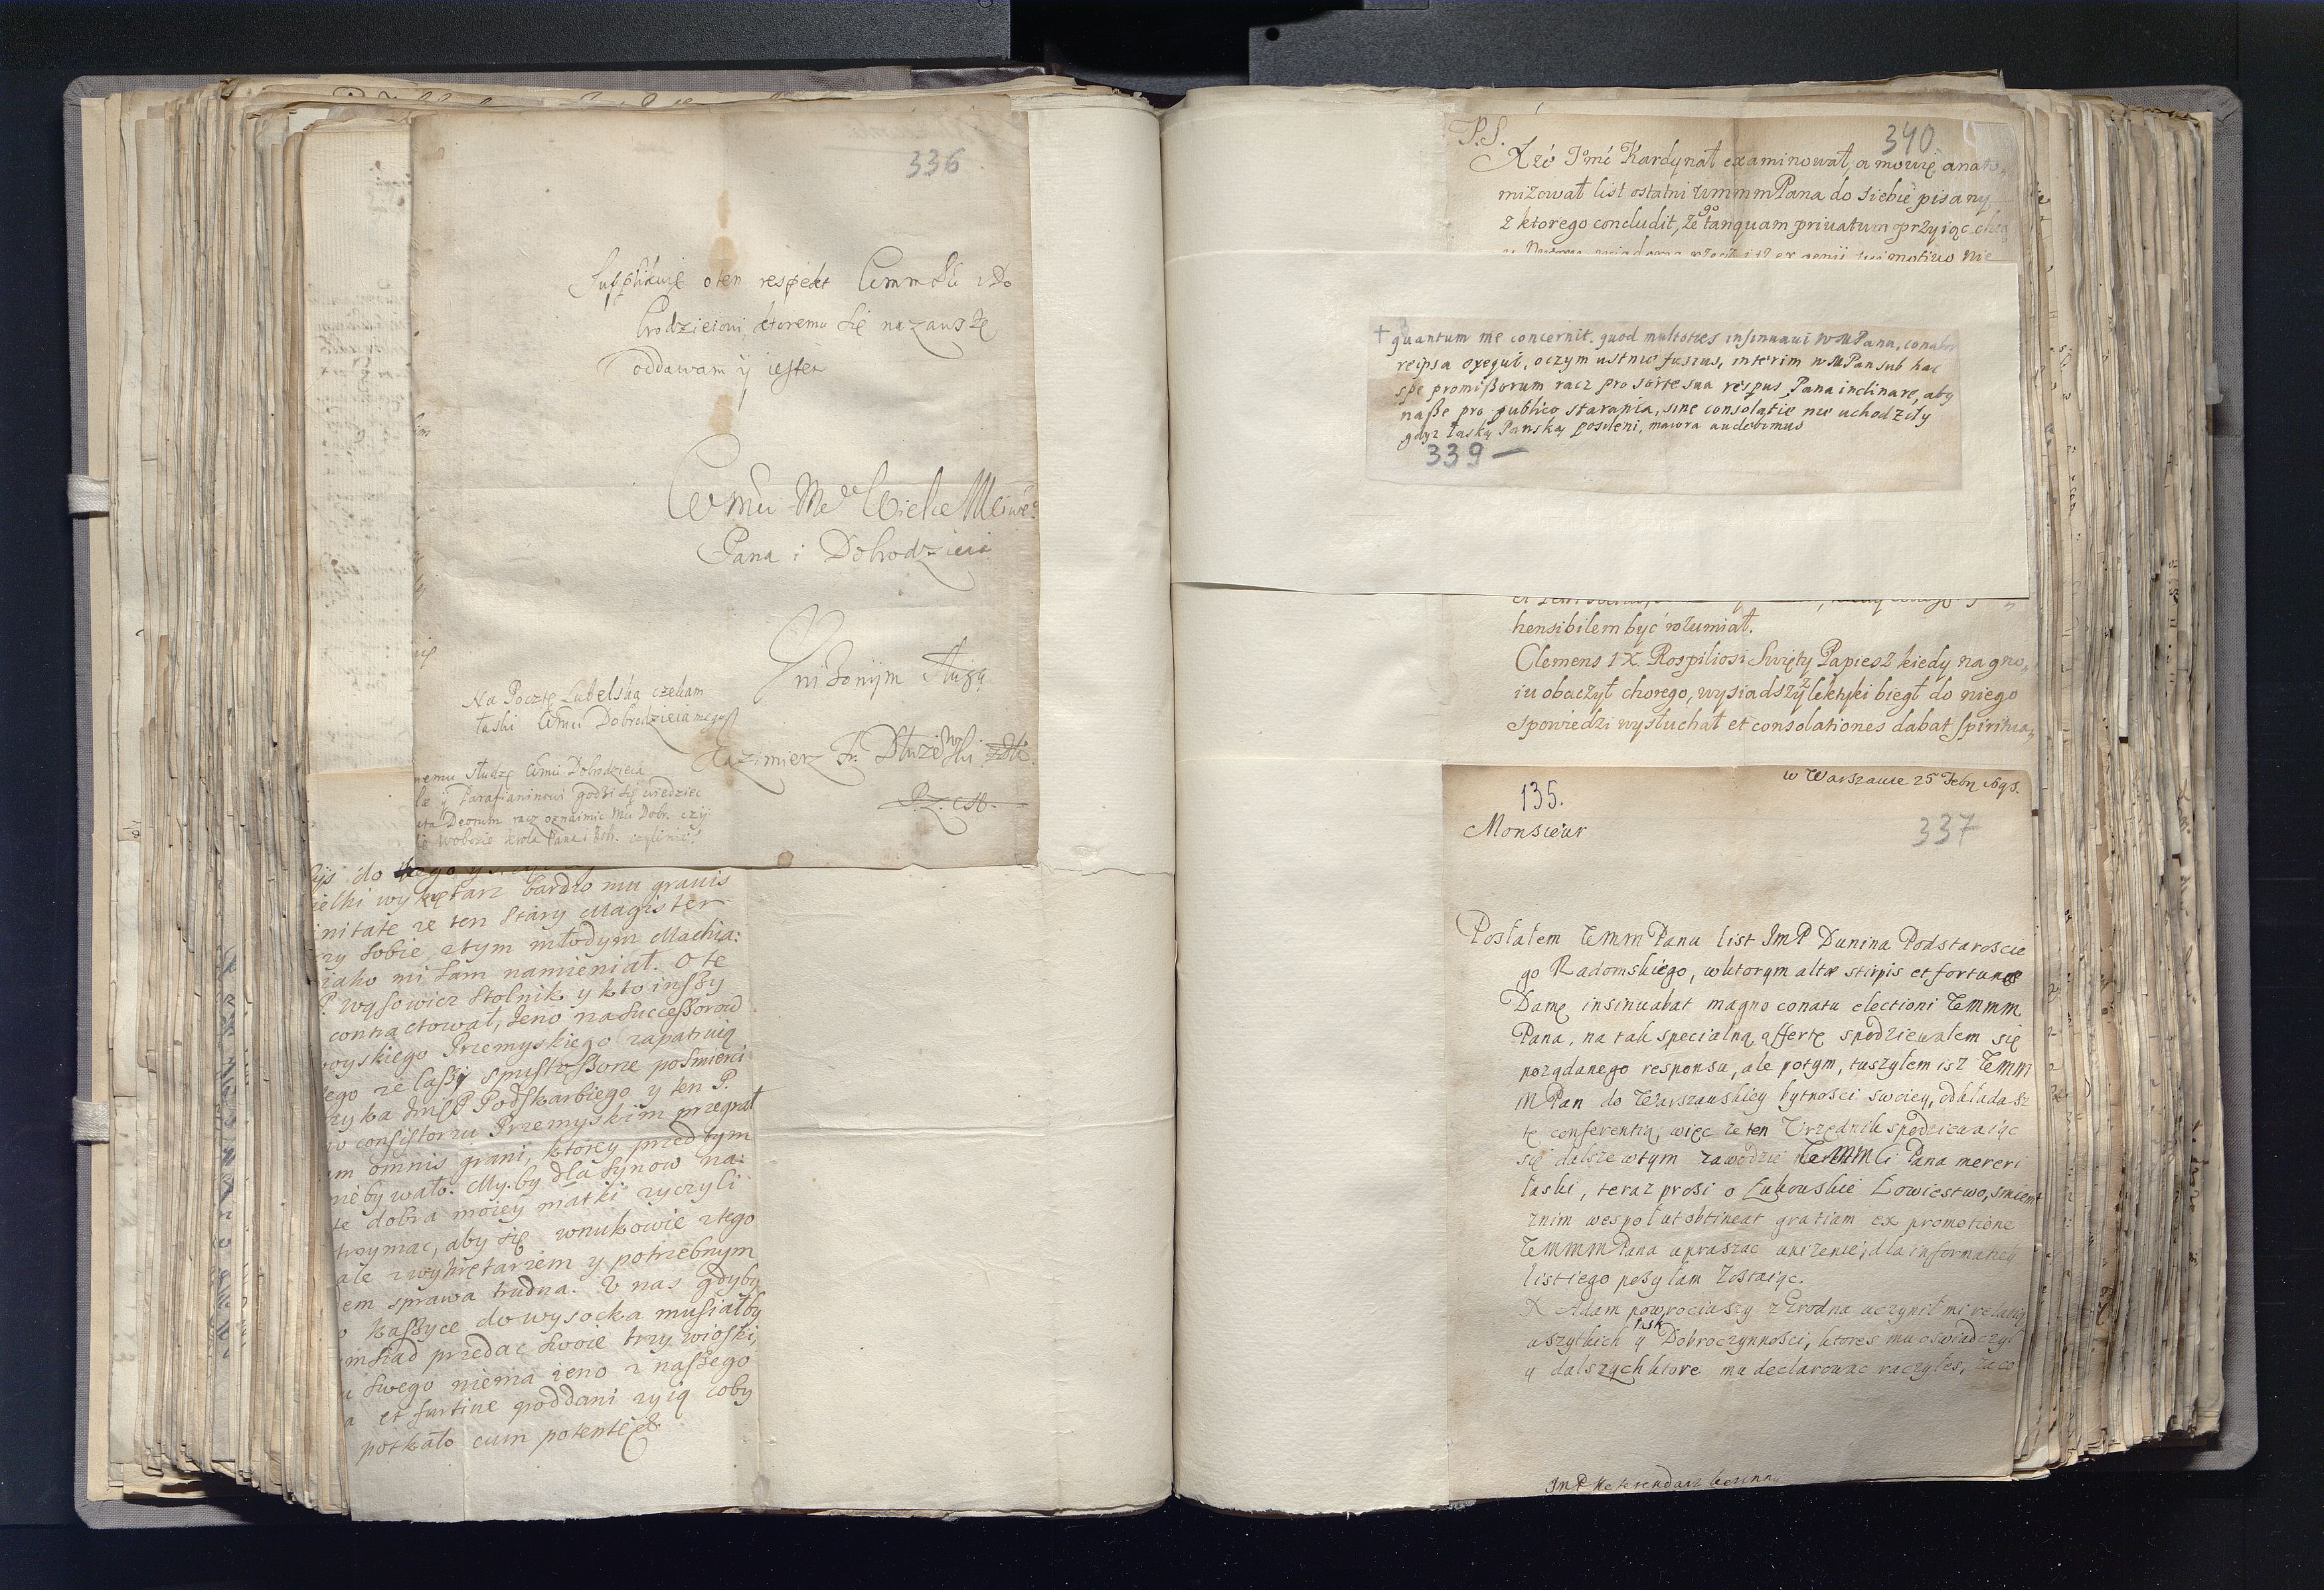 336
Supplikuię o ten respekt
oddawam y iestem
Pana i Dobrodzieia
Uniżonym Sługą
Na Pocztę Lubelską czekam
łaski Dobrodzieia mego
Kazimierz Fr. Dłużewski
nemu słudze Dobrodzieia
y Parafianinowi godzi się wiedziec
Deorum racz oznaimic Dobr. czy
wykrętarz bardzo mu gravis
nitate ze ten stary Magister
ry sobie ztym młodym Machia:
iako mi sam namieniał. O te
P. Wysowicz Stolnik y kto inszy
contractował, jeno na Successorow
oyskiego Przemyskiego zapatruią
ego ze lassy spustoszone posmieci
zyka P. Podskarbiego y ten P.
w consistorzu Przemyskim przegrał
m omnis grani, ktorey przedtym
niebywało. My. by dla synow na:
te dobra moiey matki zyczyli
trzymac, aby się wnukowie ztego
ale zwykrętarzem y potrzebnym
em sprawa trudna. U nas gdyby
kaszyce do wysocka musiałby
msiad przedac swoie trzy wioski,
swego niema jeno z naszego
a et furtive poddani zyią coby
potkało cum potente &
P.S.
340
Xzė Jmć Kardynał examinował, a mowię anato,
mizował list ostatni WmmmPana do siebie pisany,
z ktorego concludit, że go tanquam privatum przyiąc
+ quantum me concernit. quod multoties insinuaui WMPanu, conabor
reipsa exequi, oczym ustnie fusius, interim WMPan sub hac
spe promissorum racz pro sorte sua respus Pana inclinare, aby
nasze pro publico starania, sine consolatie nie uchodziły
gdyz łaską Panską posileni, maiora audebimus
339 —
hensibilem być rozumiał.
Clemens IX Rospiliosi Swięty Papiesz kiedy na gno,
iu obaczył chorego, wysiadszy z lektyki biegł do niego
spowiedzi wysłuchał et consolationes dabat spiritua,
w Warszawie 25 Febr 1693.
135.
Monsieur
337
Posłałem WmmPanu list JmP Dunina Podstaroscie
go Radomskiego, wktorym altæ stirpis et fortunæ
Damę insinuabat magno conatu electioni Wmmm
Pana, na tak specialną offertę spodziewałem się
pożądanego responsu, ale potym, tuszyłem isz Wmm
mPan do Warszawskiey bytności swoiey, odkładasz
tę conferentią, więc ze ten Urzędnik spodziewaiąc
się dalsze wtym zawodzie Pana mereri
łaski, teraz prosi o Łukowskie Łowiestwo, smiem
znim wespoł ut obtineat gratiam ex promotione
WmmmPana upraszac unizenie, dla informatiey
list iego posyłam zostaiąc.
X Adam powrociwszy z Grodna uczynił mi relatią
wszytkich łask y Dobroczynności, ktores mu oswiadczył
y dalszych ktore mu declarowac raczyłes, za co